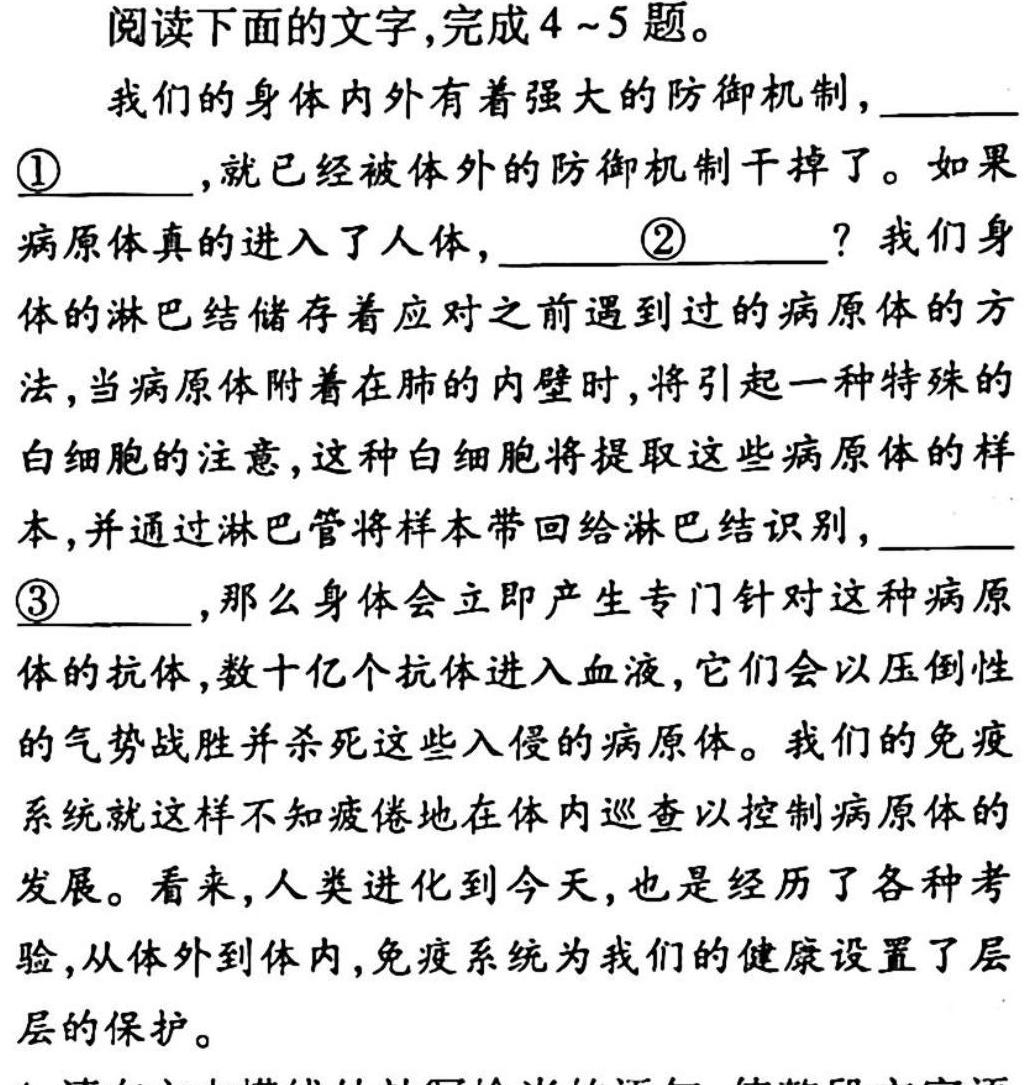 阅读下面的文字,完成4~5题。
我们的身体内外有着强大的防御机制,
①,就已经被体外的防御机制干掉了。如果
病原体真的进入了人体,②?我们身
体的淋巴结储存着应对之前遇到过的病原体的方
法,当病原体附着在肺的内壁时,将引起一种特殊的
白细胞的注意,这种白细胞将提取这些病原体的样
本,并通过淋巴管将样本带回给淋巴结识别,
③,那么身体会立即产生专门针对这种病原
体的抗体,数十亿个抗体进入血液,它们会以压倒性
的气势战胜并杀死这些入侵的病原体。我们的免疫
系统就这样不知疲倦地在体内巡查以控制病原体的
发展。看来,人类进化到今天,也是经历了各种考
验,从体外到体内,免疫系统为我们的健康设置了层
层的保护。